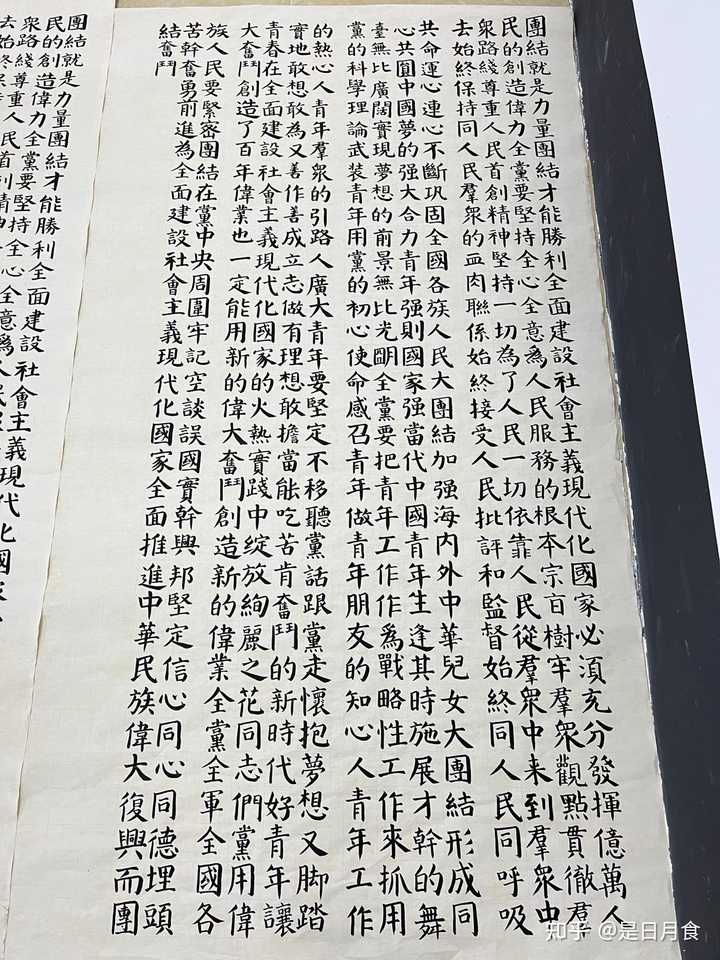 團結就是力量團結才能勝利全面建設社會主義現代化國家必須充分發揮億萬人
民的創造偉力全黨要堅持全心全意爲人民服務的根本宗旨樹牢羣衆觀點貫徹羣
衆路綫尊重人民首創精神堅持一切為了人民一切依靠人民從羣衆中来到羣衆中
去始終保持同人民羣衆的血肉聯係始終接受人民批評和監督始終同人民同呼吸
共命運心連心不斷巩固全國各族人民大團結加强海内外中華兒女大團結形成同
心共圓中國夢的强大合力青年强則國家强當代中國青年生逢其時施展才幹的舞
臺無比廣闊實現夢想的前景無比光明全黨要把青年工作作爲戰略性工作來抓用
黨的科學理論武裝青年用黨的初心使命感召青年做青年朋友的知心人青年工作
的熱心人青年羣衆的引路人廣大青年要堅定不移聽黨話跟黨走懷抱夢想又脚踏
實地敢想敢為又善作善成立志做有理想敢擔當能吃苦肯奮鬥的新時代好青年讓
青春在全面建設社會主義現代化國家的火熱實踐中綻放絢麗之花同志們黨用偉
大奮鬥創造了百年偉業也一定能用新的偉大奮鬥創造新的偉業全黨全軍全國各
族人民要緊密團結在黨中央周圍牢記空談誤國實幹興邦堅定信心同心同德埋頭
苦幹奮勇前進為全面建設社會主義現代化國家全面推進中華民族偉大復興而團
結奮鬥
團結就是力量團結才能勝利全面建設社會主義現代化國
民的創造偉力全黨要堅持全心全意爲人民
衆路綫尊重人民首創精神
去始終保持
知乎 @是日月食